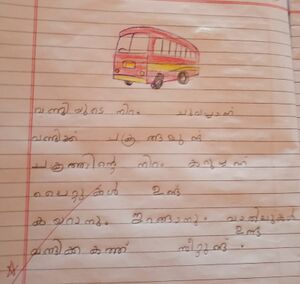 വണ്ടിയുടെ നിറം ചുവപ്പാണ്
വണ്ടിക്ക് ചക്രങ്ങളുണ്ട്
ചക്രത്തിന്റെ നിറം കറുപ്പാണ്
ലൈറ്റുകൾ ഉണ്ട്
കയറാനും ഇറങ്ങാനും വാതിലുകൾ
ഉണ്ട്
വണ്ടിക്ക കത്ത് സീറ്റുണ്ട്.